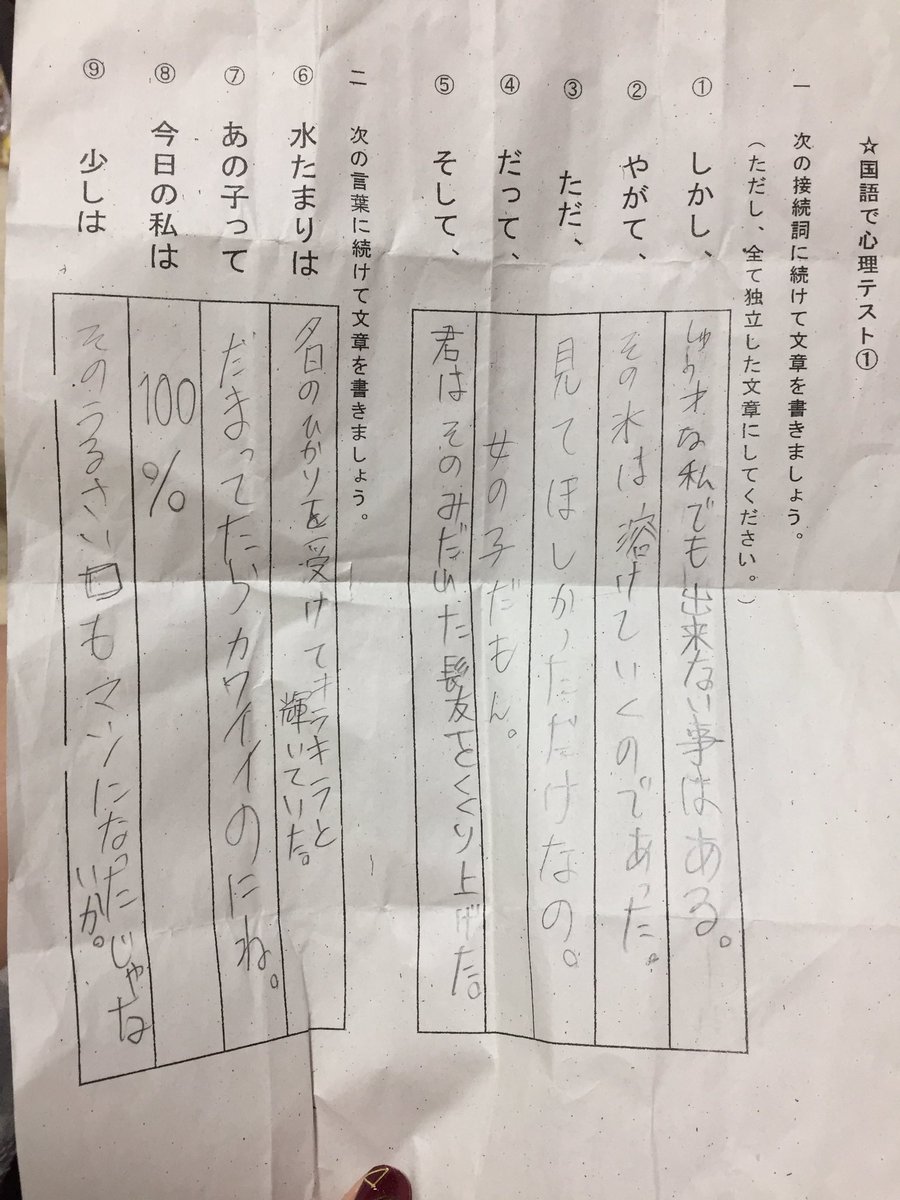 ☆国語で心理テスト①
一 次の接続詞に続けて文章を書きましょう。
（ただし、全て独立した文章にしてください。）
① しかし、 しゅう才な私でも出来ない事はある。
② やがて、 その氷は溶けていくのであった。
③ ただ、 見てほしかっただけなの。
④ だって、 女の子だもん。
⑤ そして、 君はそのみだれた髪をくくり上げた。
二 次の言葉に続けて文章を書きましょう。
⑥ 水たまりは 名日のひかりを受けてキラキラと
輝いていた。
⑦ あの子って だまってたらカワイイのにね。
⑧ 今日の私は 100%
⑨ 少しは そのうるさい口もマシになったじゃな
いか。